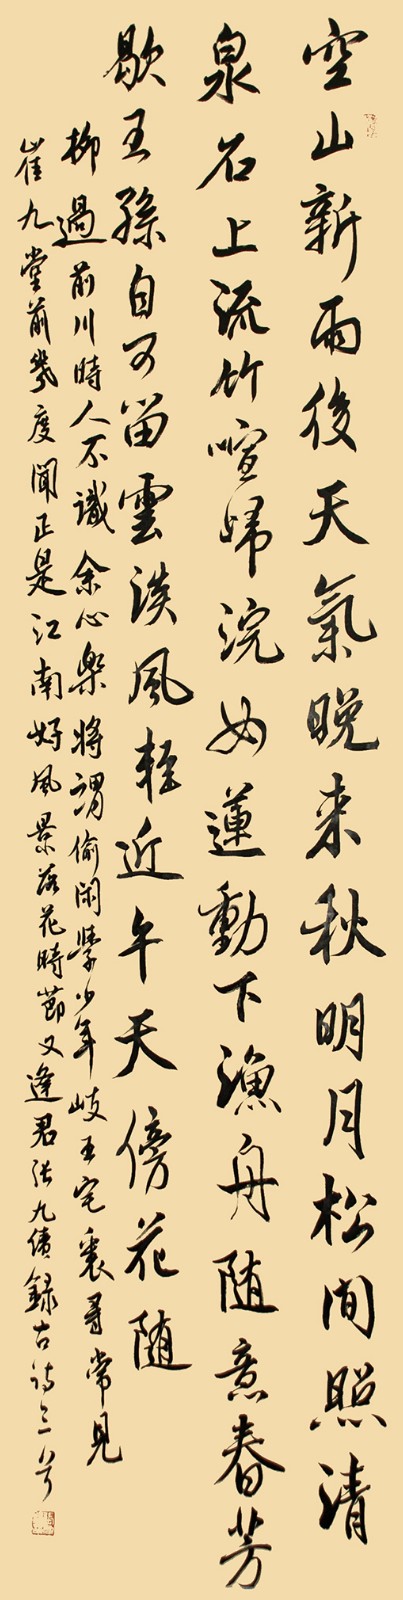 空山新雨後天氣晚来秋明月松间照清
泉石上流竹喧歸浣女蓮動下漁舟随意春芳
歇王孫自可留雲淡風輕近午天傍花随
柳過前川時人不識余心樂将謂偷闲學少年岐王宅裏尋常見
崔九堂前幾度聞正是江南好風景落花時節又逢君张九錄古诗三首